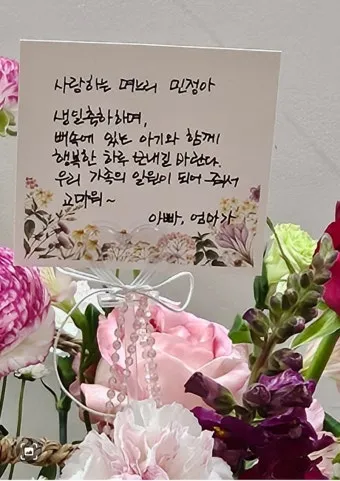 사랑하는 며느리 민정아
생일축하하며,
배속에 있는 아기와 함께
행복한 하루 보내길 바란다.
우리 가족의 일원이 되어 줘서
고마워~
아빠, 엄마가